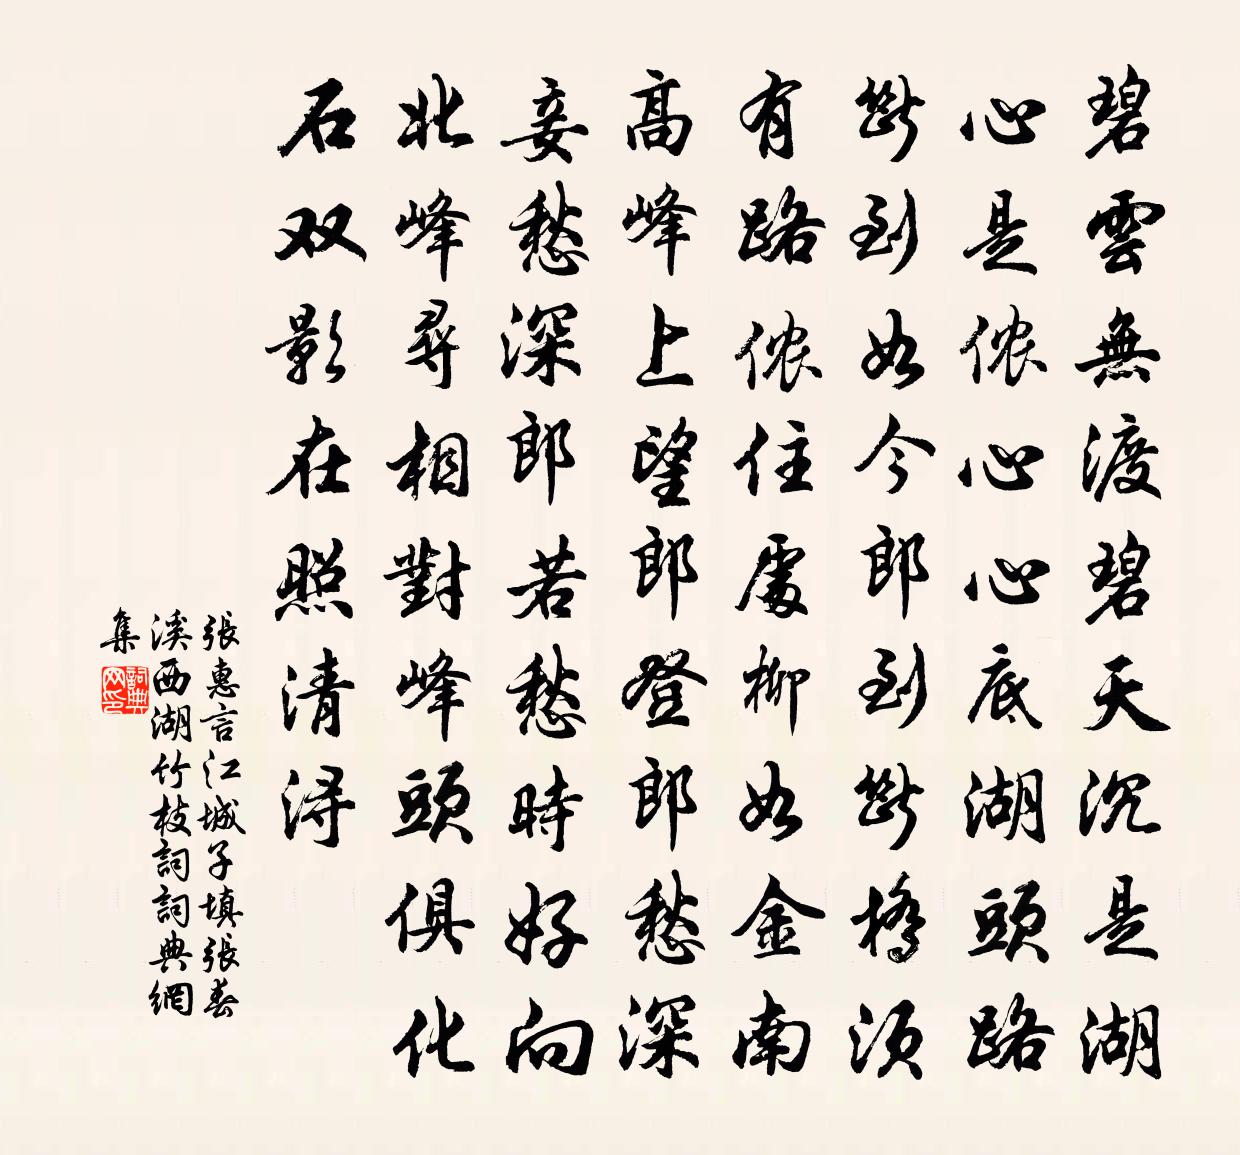 碧雲無渡碧天沉是湖
心是侬心心底湖頭路
斷到如今郎到斷橋須
有路侬住處柳如金南
高峰上望郎登郎愁深
妾愁深郎若愁時好向
北峰尋相對峰頭俱化
石双影在照清潯
張惠言江城子填張春
溪西湖竹枝詞詞典網
集
詞典网印